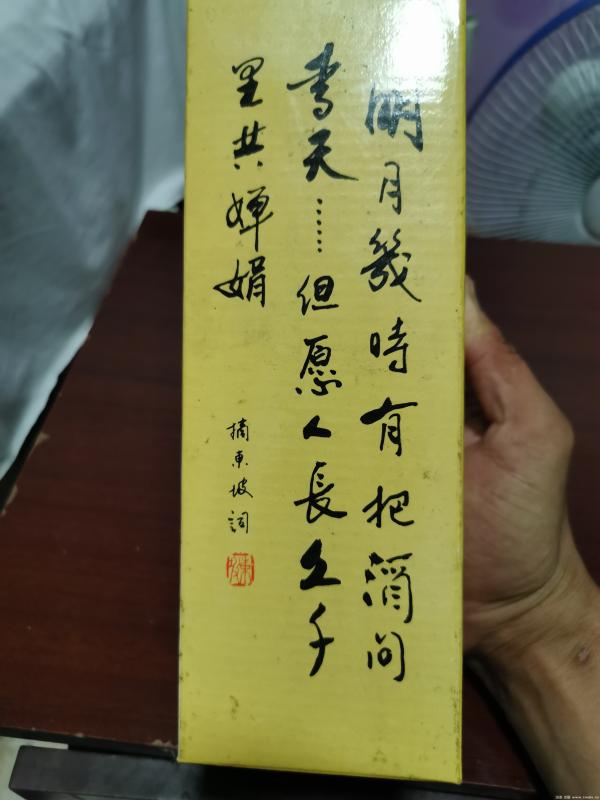 明月幾時有把酒问
青天……但愿人長久千
里共婵娟
摘東坡詞